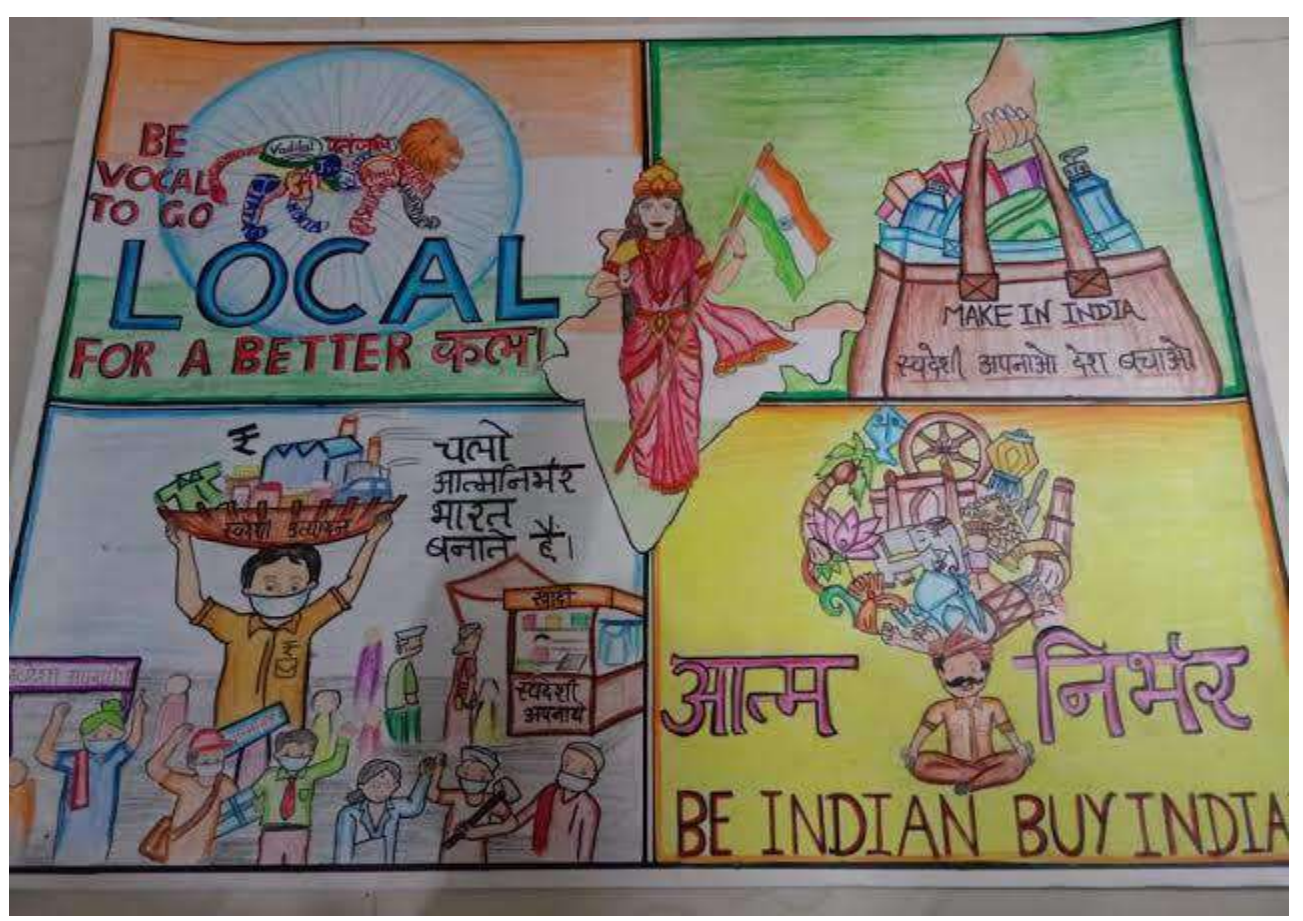 BE
VOCAL
TO GO
Vadilal पतंजलि
LOCAL
FOR A BETTER कल।
MAKE IN INDIA
स्वदेशी अपनाओ देश बचाओ
₹
चलो
आत्मनिर्भर
भारत
बनाते हैं।
स्वदेशी उत्पादन
खादी
स्वदेशी
अपनाये
आत्म निर्भर
BE INDIAN BUY INDIA